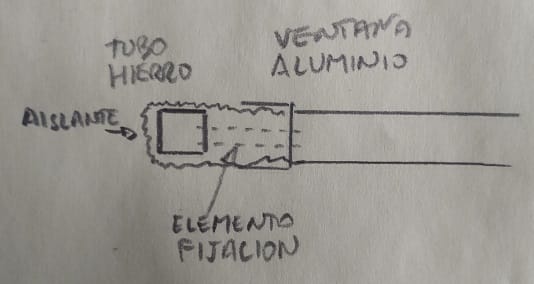 TUBO
HIERRO
VENTANA
ALUMINIO
AISLANTE
ELEMENTO
FIJACION